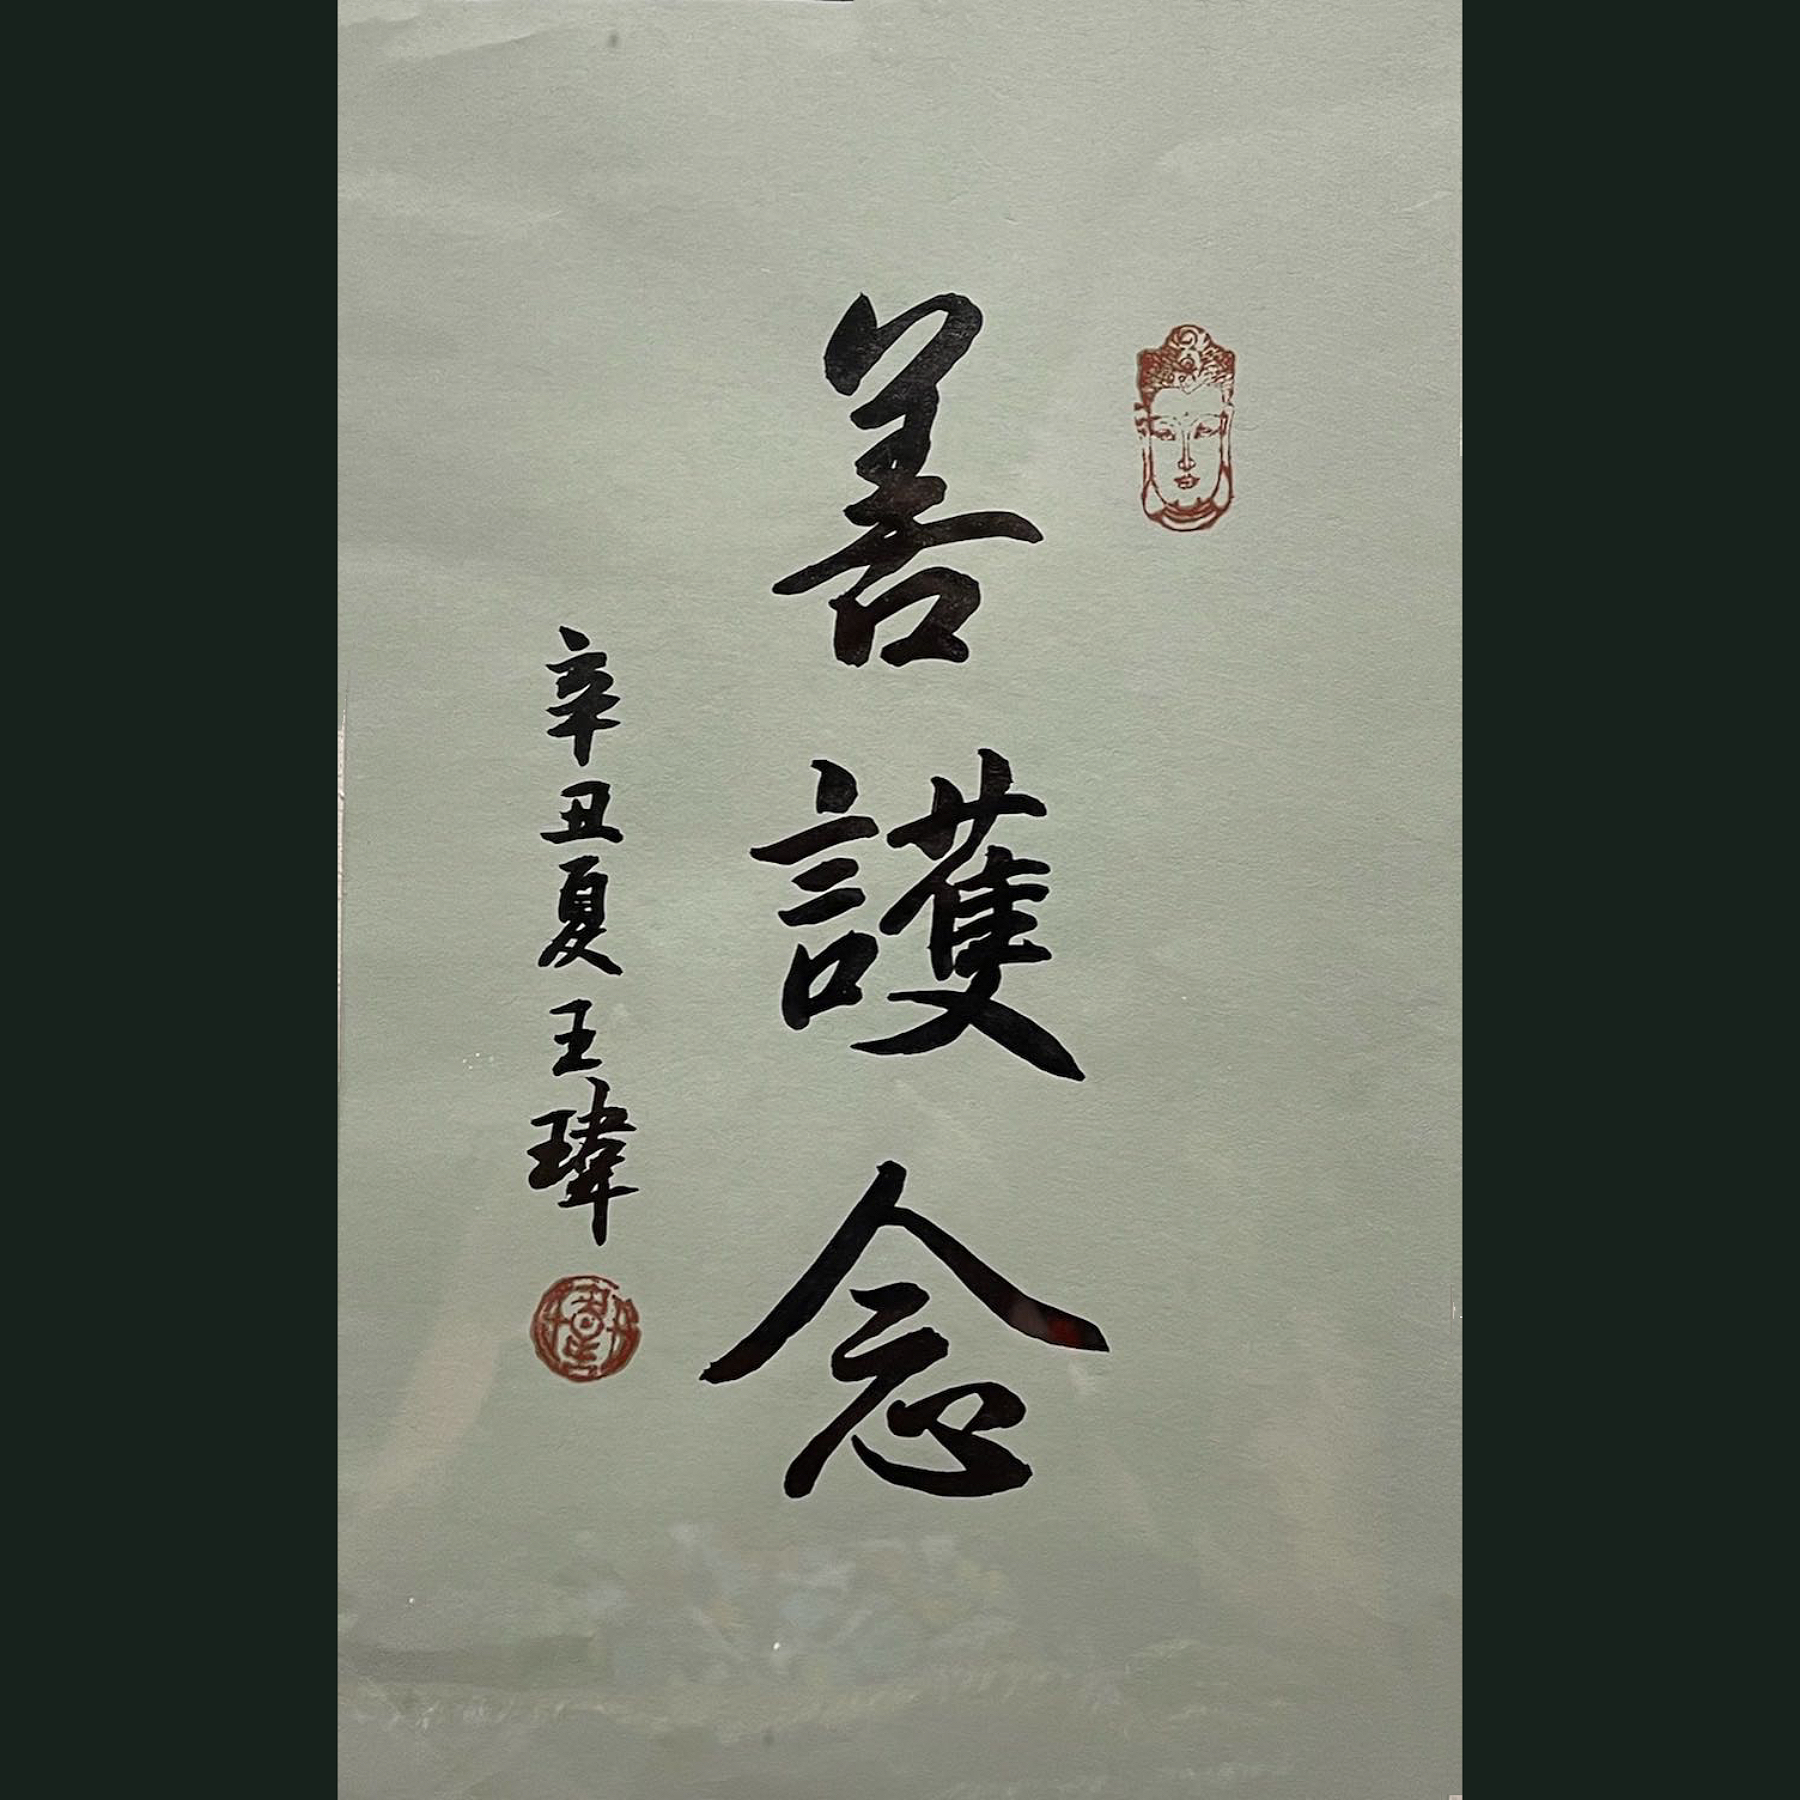 善護念
辛丑夏王瑋